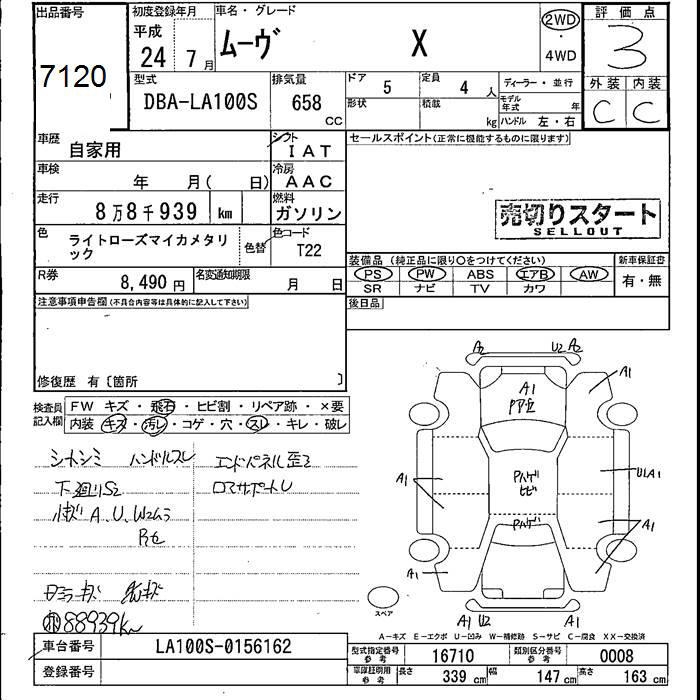 出品番号
7120
初度登録年月
平成
24 7月
車名・グレード
ムーヴ X
2WD
・
4WD
評価点
3
外装 内装
C C
型式
DBA-LA100S
排気量
658
CC
ドア
5
定員
4 人
形状
積載
kg
ディーラー・並行
モデル年式 年
ハンドル 左・右
車歴
自家用
シフト
IAT
車検
年 月( 日)
冷房
AAC
走行
8万8千939 km
燃料
ガソリン
色
ライトローズマイカメタリック
色替
色コード
T22
R券
8,490円
名変通知期限
月 日
セールスポイント(正常に機能するものに限ります)
売切りスタート
SELLOUT
装備品(純正品に限り○をつけてください)
PS PW ABS エアB AW
SR ナビ TV カワ
新車保証書
有・無
後日品
注意事項申告欄(不具合内容等は具体的に記入して下さい)
修復歴 有〔箇所 〕
検査員記入欄
FW キズ・飛石・ヒビ割・リペア跡・×要
内装・キズ・汚レ・コゲ・穴・スレ・キレ・破レ
シートシミ ハンドルスレ
エンドパネル歪2
下廻りS2
ロアサポートU
小キズ A、U、W2ムラ
88939km
A2 U2 A2
A1
A1
A1
U1A1
A1
A1
A1 U2 A1
スペア
A-キズ E-エクボ U-凹み W-補修跡 S-サビ C-腐食 XX-交換済
車台番号
LA100S-0156162
登録番号
型式指定番号
参考
16710
類別区分番号
参考
0008
車庫証明用
参考
長さ 339 cm 幅 147 cm 高さ 163 cm